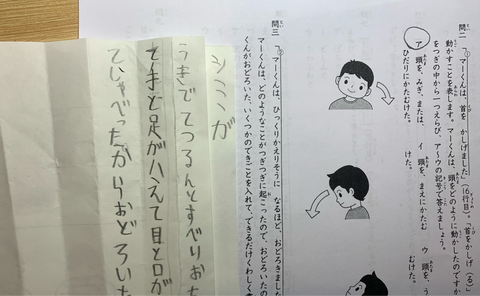 問二 「マーくんは、首を かしげました」(16行目)。「首をかしげ(る)
動かすことを表します。マーくんは、頭をどのように動かしたのですか
をつぎの中から一つえらび、ア〜ウの記号で答えましょう。
ア 頭を、みぎ、または、
ひだりにかたむけた。
イ 頭を、まえにかたむ
けた。
ウ 頭を、う
むけた。
問三 「マーくんは、ひっくりかえりそうに なるほど、おどろきまし
マーくんは、どのようなことがつぎつぎに起こったので、おどろいたの
くんがおどろいた、いくつかのできごとを入れて、できるだけくわしく
シミが
うきでてつるんとすべりおち
て手と足がハえて目と口が
てしゃべったからおどろいた